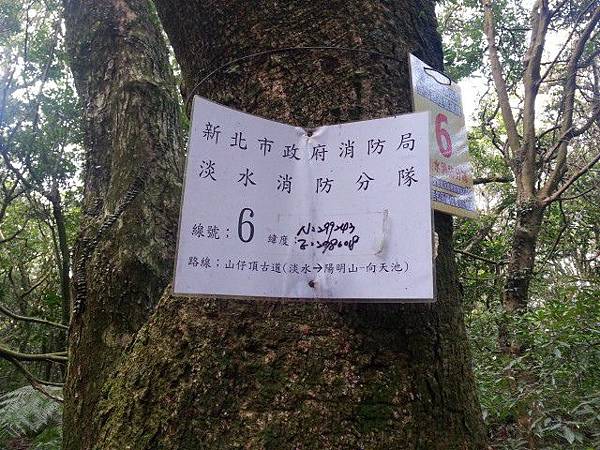 新北市政府消防局
淡水消防分隊
線號；6 緯度：N:299243
E:298608
路線；山仔頂古道(淡水→陽明山-向天池)
6